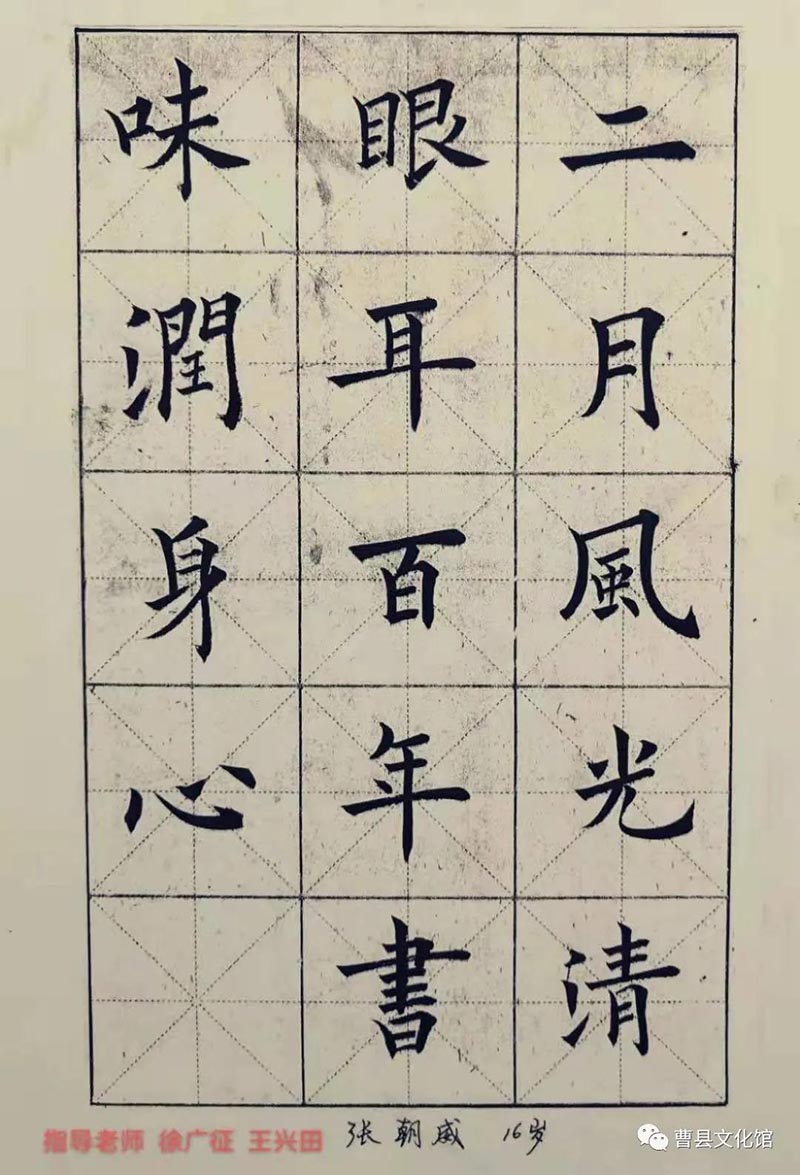 二月風光清
眼耳百年書
味潤身心
指导老师 徐广征 王兴田
张朝威 16岁
曹县文化馆